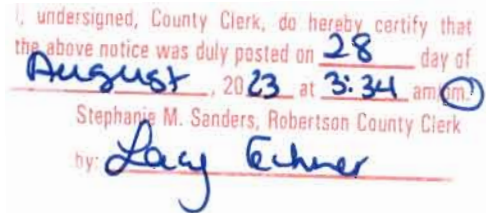 I, undersigned, County Clerk, do hereby certify that
the above notice was duly posted on 28 day of
August, 2023 at 3:34 am pm.
Stephanie M. Sanders, Robertson County Clerk
by: Lacy